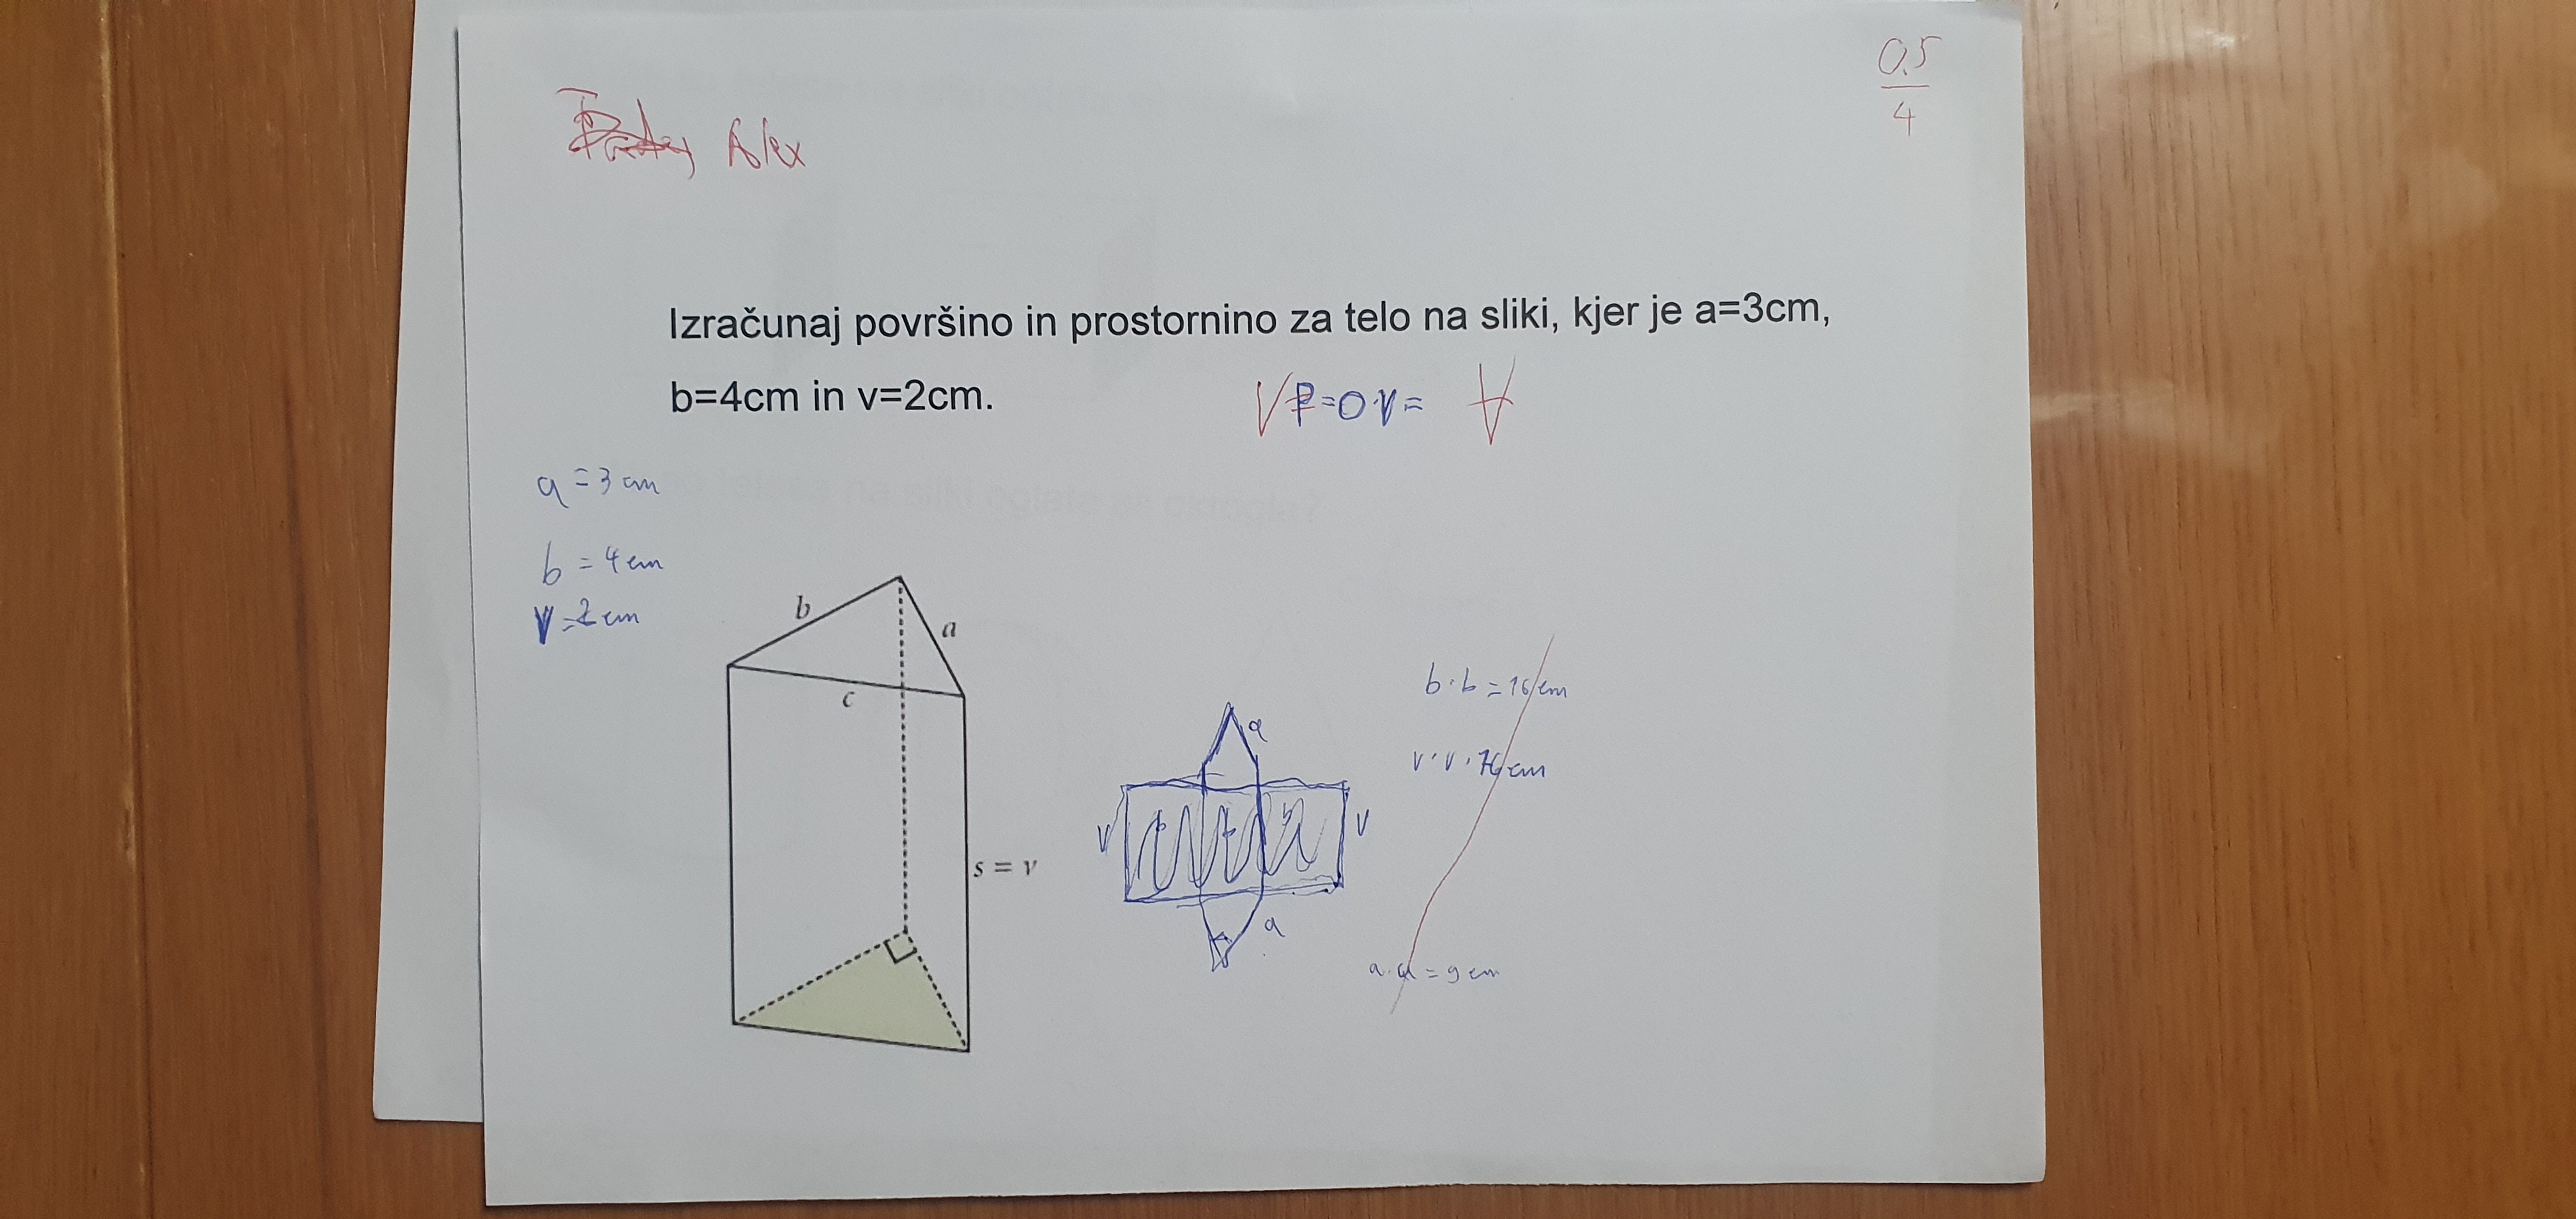 0.5
4
Alex
Izračunaj površino in prostornino za telo na sliki, kjer je a=3cm,
b=4cm in v=2cm.
V P=O·V= V
a = 3 cm
b = 4 cm
V = 2 cm
b
a
c
s = v
a
V
V
a
b·b = 16 cm
a·a = 9 cm